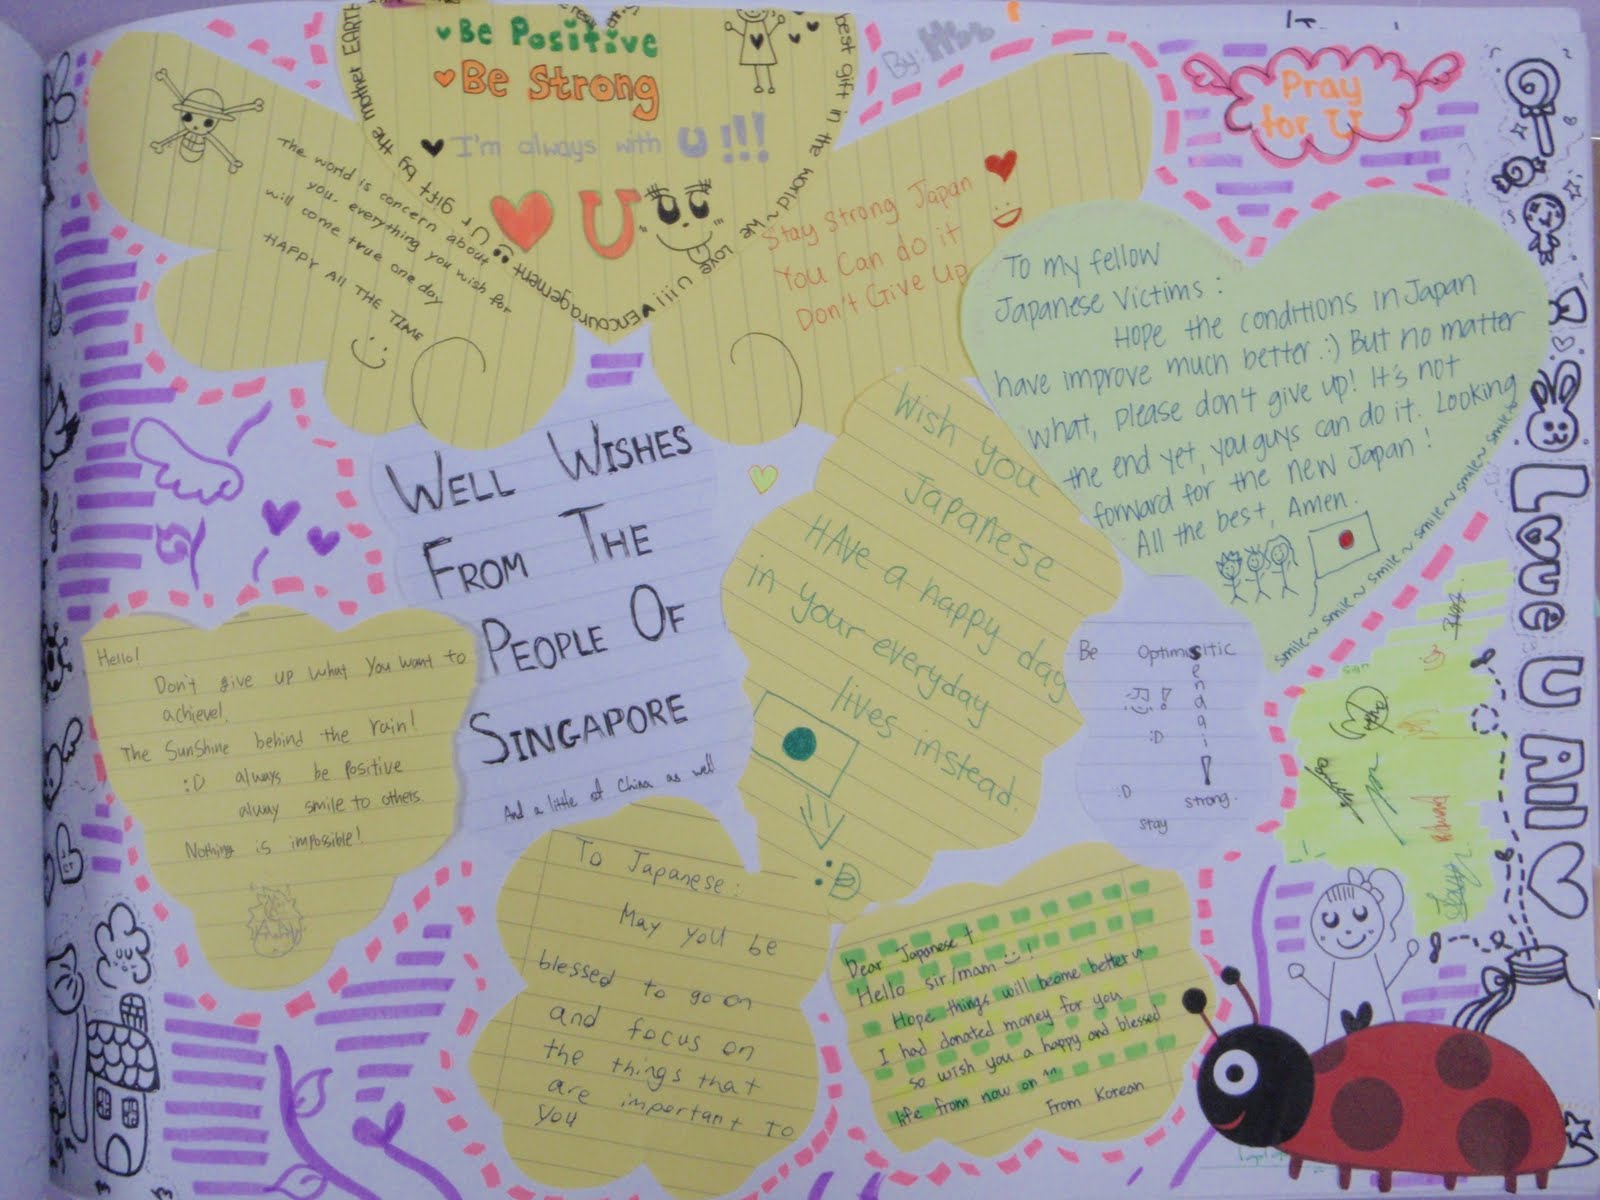 Be Positive
Be Strong
I'm always with U!!!
U
best gift in the world~ We Love U!!!
encouragement
U r gift by the mother EARTH
By:
Pray
for U
The world is concern about
you. everything you wish for
will come true one day
HAPPY All THE TIME
Stay Strong Japan
You Can do it
Don't Give Up
To my fellow
Japanese Victims:
Hope the conditions in Japan
have improve much better :) But no matter
what, please don't give up! It's not
the end yet, you guys can do it. Looking
forward for the new Japan!
All the best, Amen.
smile~ smile~ smile~ smile~ smile~ smile~ smile~
WELL WISHES
FROM THE
PEOPLE OF
SINGAPORE
And a little of China as well
Wish you
Japanese
HAve a happy day
in your everyday
lives instead.
Hello!
Don't give up what you want to
achieve!
The Sunshine behind the rain!
:D always be positive
alway smile to others.
Nothing is impossible!
Be Optimsitic
Sendai!
:D
:D
stay strong.
To Japanese:
May you be
blessed to go on
and focus on
the things that
are important to
you
Dear Japanese
Hello sir/mam !
Hope things will become better
I had donated money for you
so wish you a happy and blessed
life from now on ^^
From Korean
Love U All